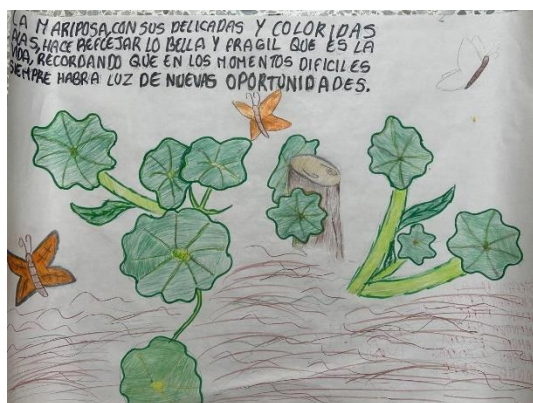 LA MARIPOSA, CON SUS DELICADAS Y COLORIDAS
ALAS, HACE REFLEJAR LO BELLA Y FRAGIL QUE ES LA
VIDA, RECORDANDO QUE EN LOS MOMENTOS DIFICILES
SIEMPRE HABRA LUZ DE NUEVAS OPORTUNIDADES.